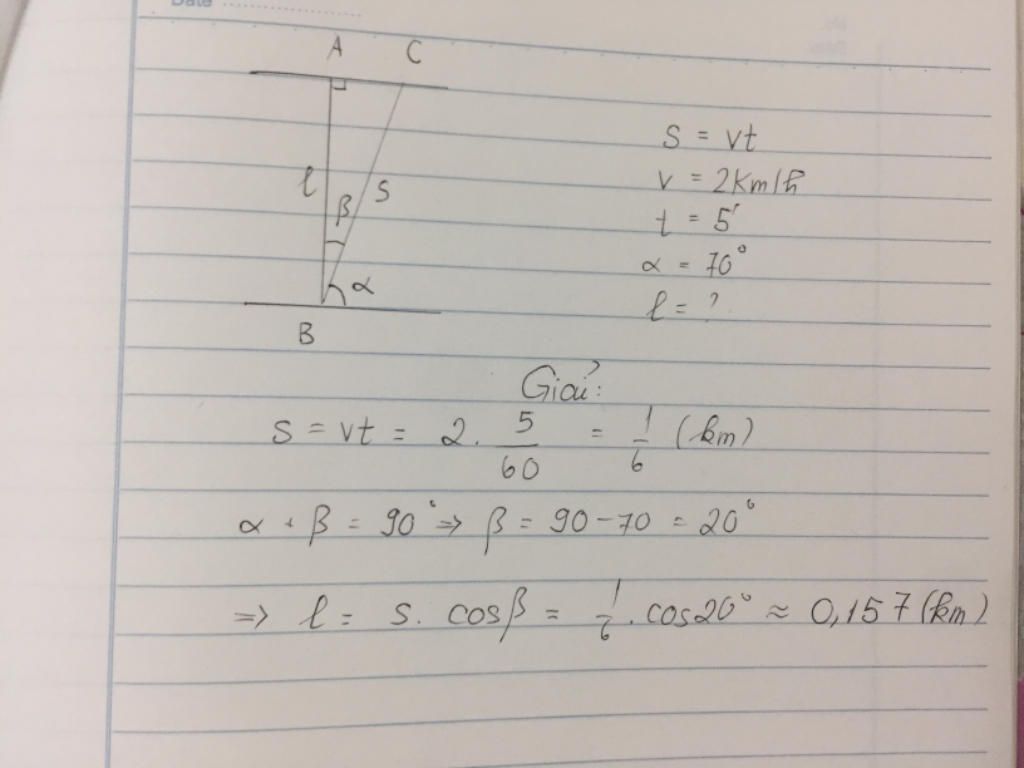 Date
A C
l β S
α
B
S = vt
v = 2km/h
t = 5'
α = 70°
l = ?
Giải:
s = vt = 2. 5/60 = 1/6 (km)
α + β = 90° => β = 90 - 70 = 20°
=> l = s. cosβ = 1/6 . cos20° ≈ 0,157 (km)